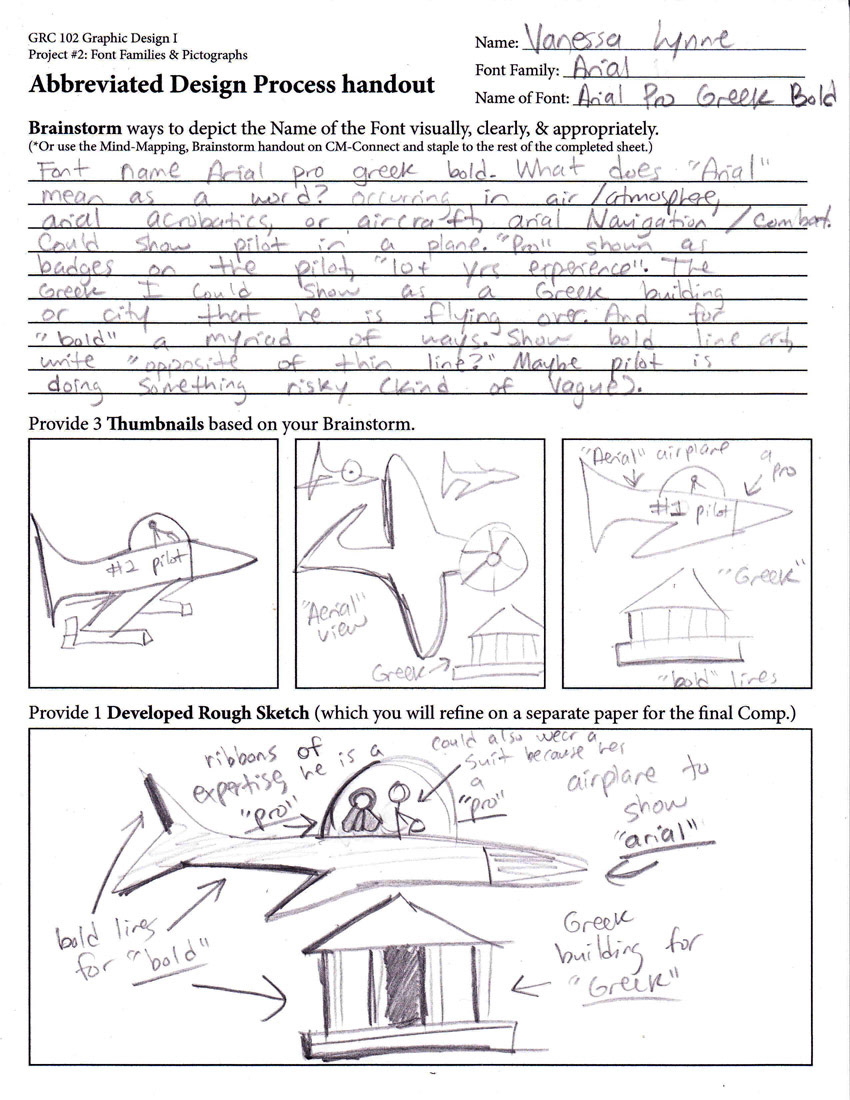 GRC 102 Graphic Design I
Project #2: Font Families & Pictographs
Abbreviated Design Process handout
Name: Vanessa Lynne
Font Family: Arial
Name of Font: Arial Pro Greek Bold
Brainstorm ways to depict the Name of the Font visually, clearly, & appropriately.
(*Or use the Mind-Mapping, Brainstorm handout on CM-Connect and staple to the rest of the completed sheet.)
Font name Arial pro greek bold. What does "Arial"
mean as a word? occurring in air/atmosphere,
arial acrobatics, or aircraft, arial Navigation/Combat.
Could show pilot in a plane. "Pro" shown as
badges on the pilot, "10+ yrs experience". The
Greek I could show as a Greek building
or city that he is flying over. And for
"bold" a myriad of ways. Show bold line art,
write "opposite of thin line?" Maybe pilot is
doing something risky (kind of vague).
Provide 3 Thumbnails based on your Brainstorm.
#2 pilot
"Aerial"
view
Greek
"Aerial" airplane
a
pro
#1 pilot
"Greek"
"bold" lines
Provide 1 Developed Rough Sketch (which you will refine on a separate paper for the final Comp.)
ribbons of
expertise, he is a
"pro"
could also wear a
suit because hes
a
"pro"
airplane to
show
"arial"
bold lines
for "bold"
Greek
building for
"Greek"